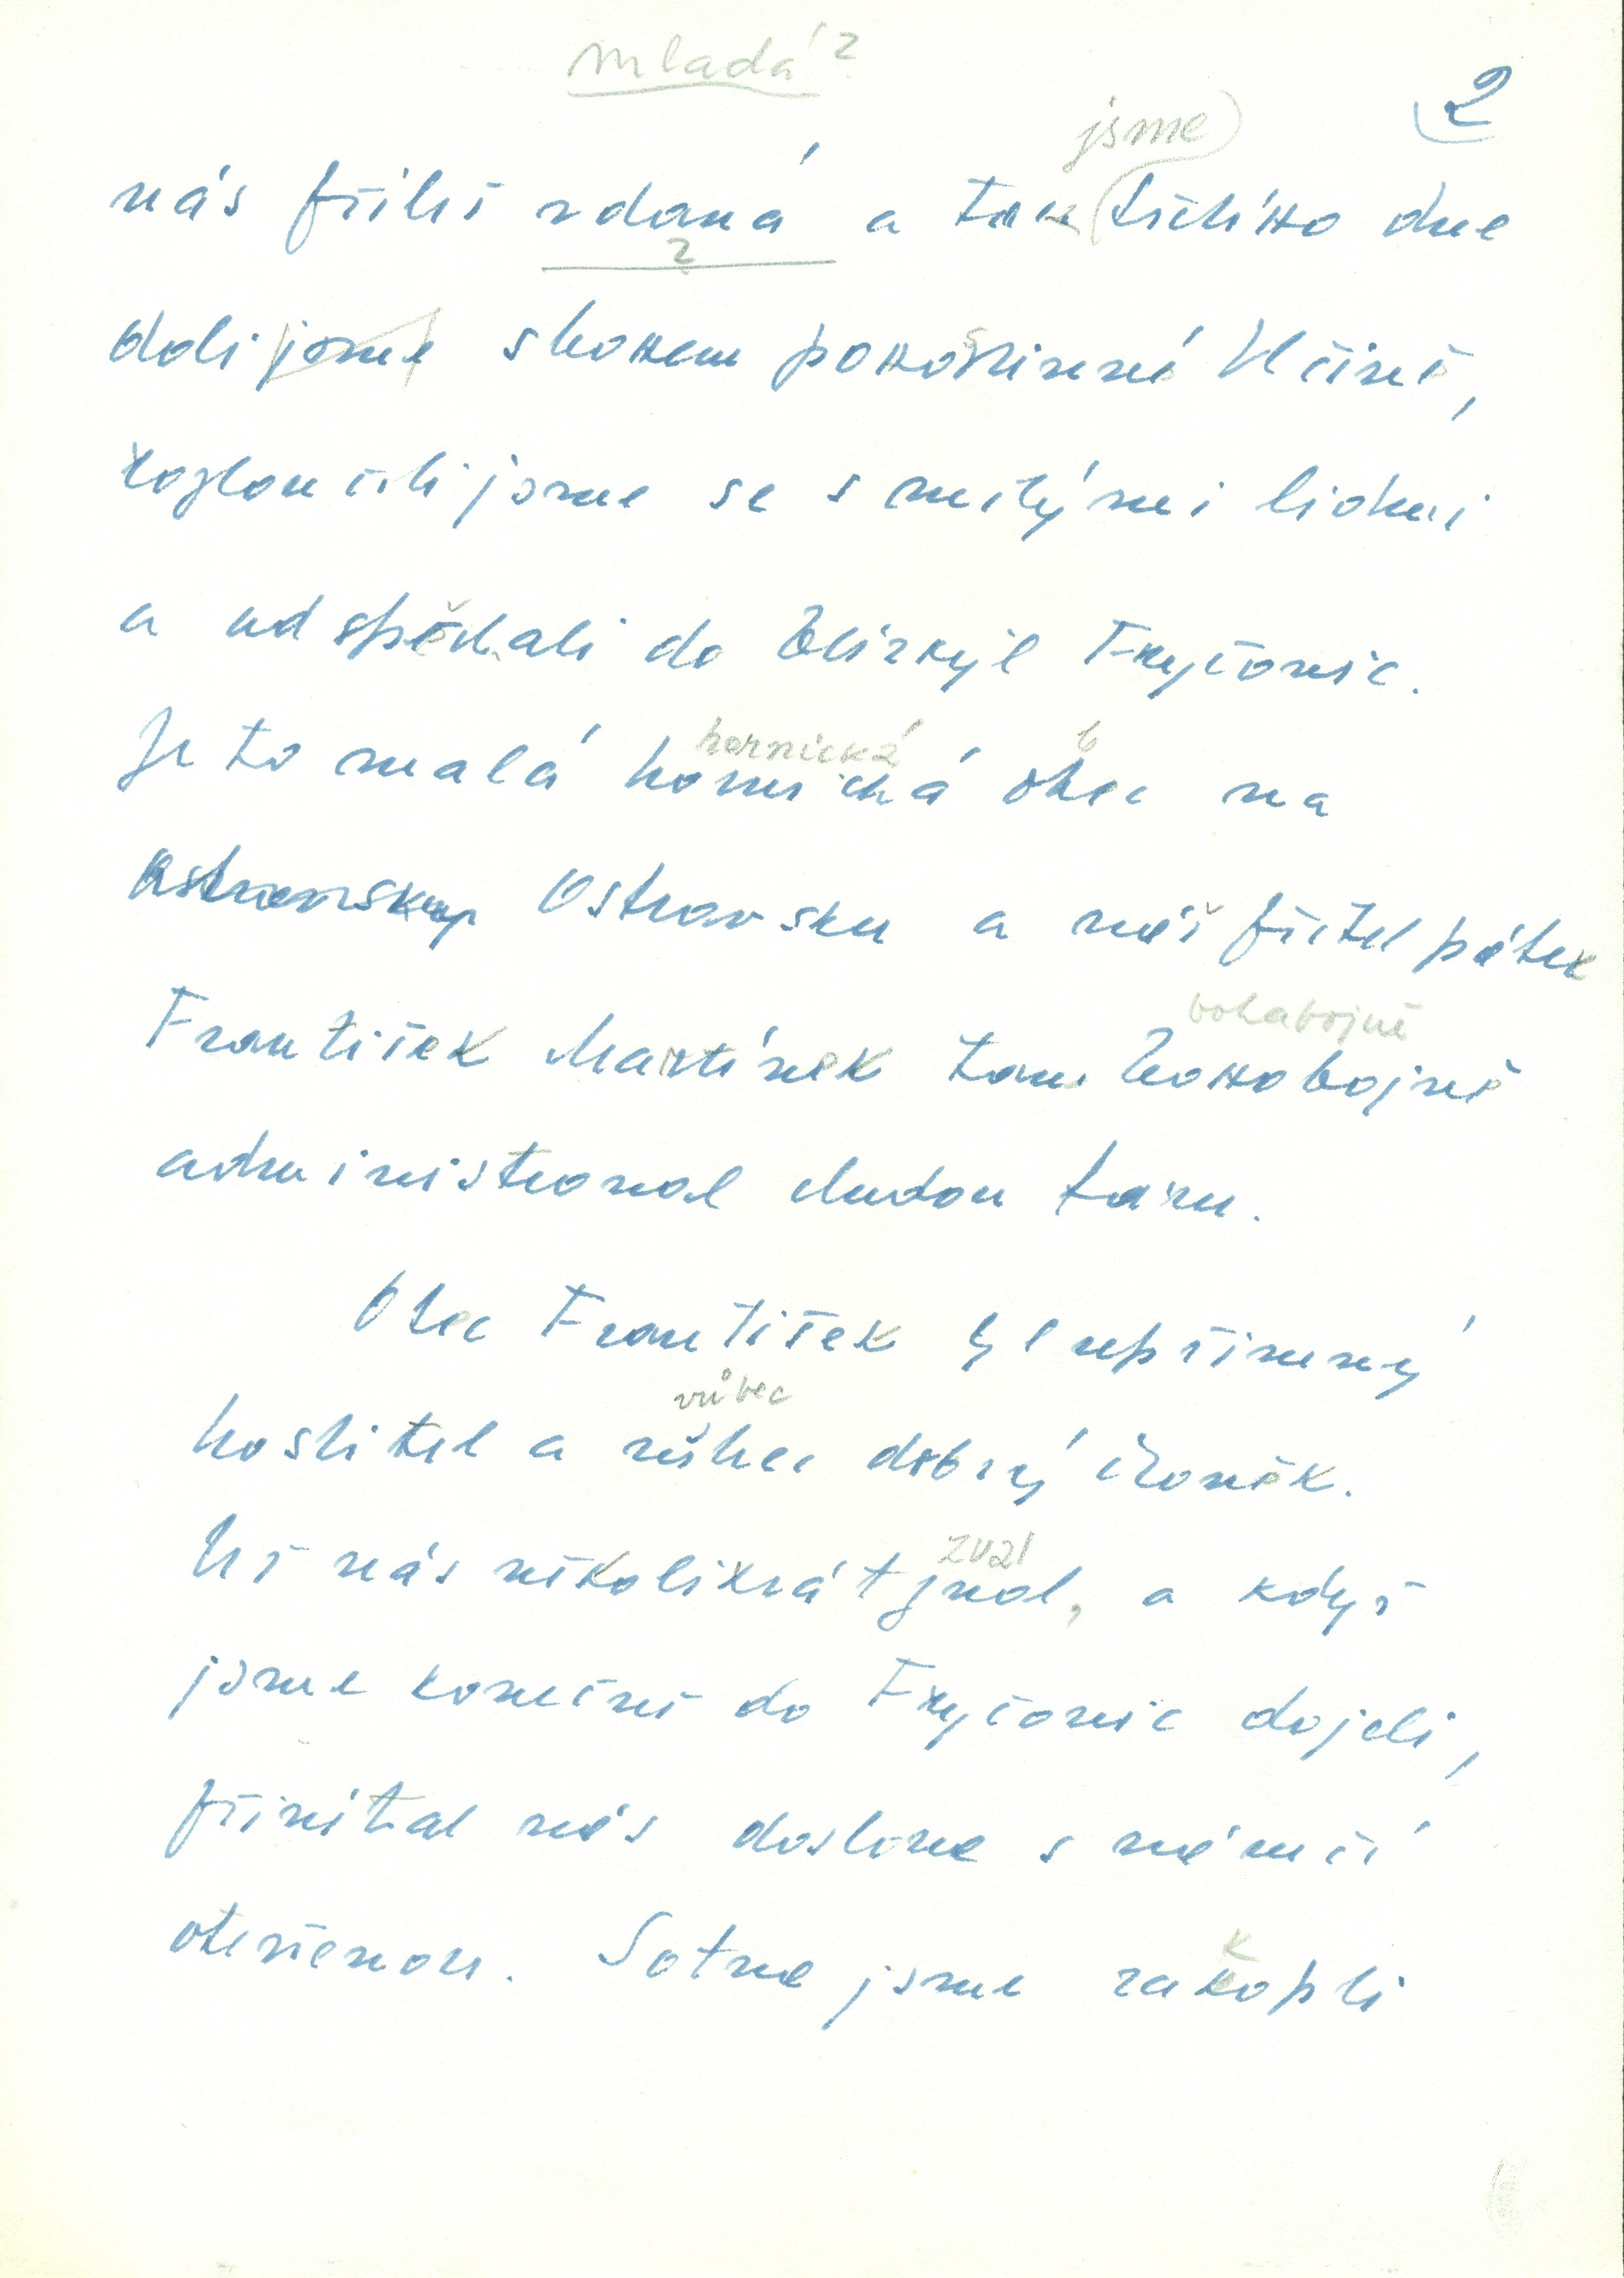 mladá?
2
jsme
nás příliš vdaná a tak třetího dne
?
dali jsme sbohem pohostinné Vlčině,
rozloučili jsme se s milými lidmi
a odspěchali do blízkých Fryčovic.
hornická b
Je to malá hornická obec na
Ostravsku a náš přítel páter
bohabojně
František Martínek tam bohobojně
administroval chudou faru.
Otec František byl upřímný
vůbec
hostitel a vůbec dobrý člověk.
zval
Už nás několikrát zval, a když
jsme konečně do Fryčovic dojeli,
přivítal nás doslova s náručí
otevřenou. Sotva jsme zaklopli
k